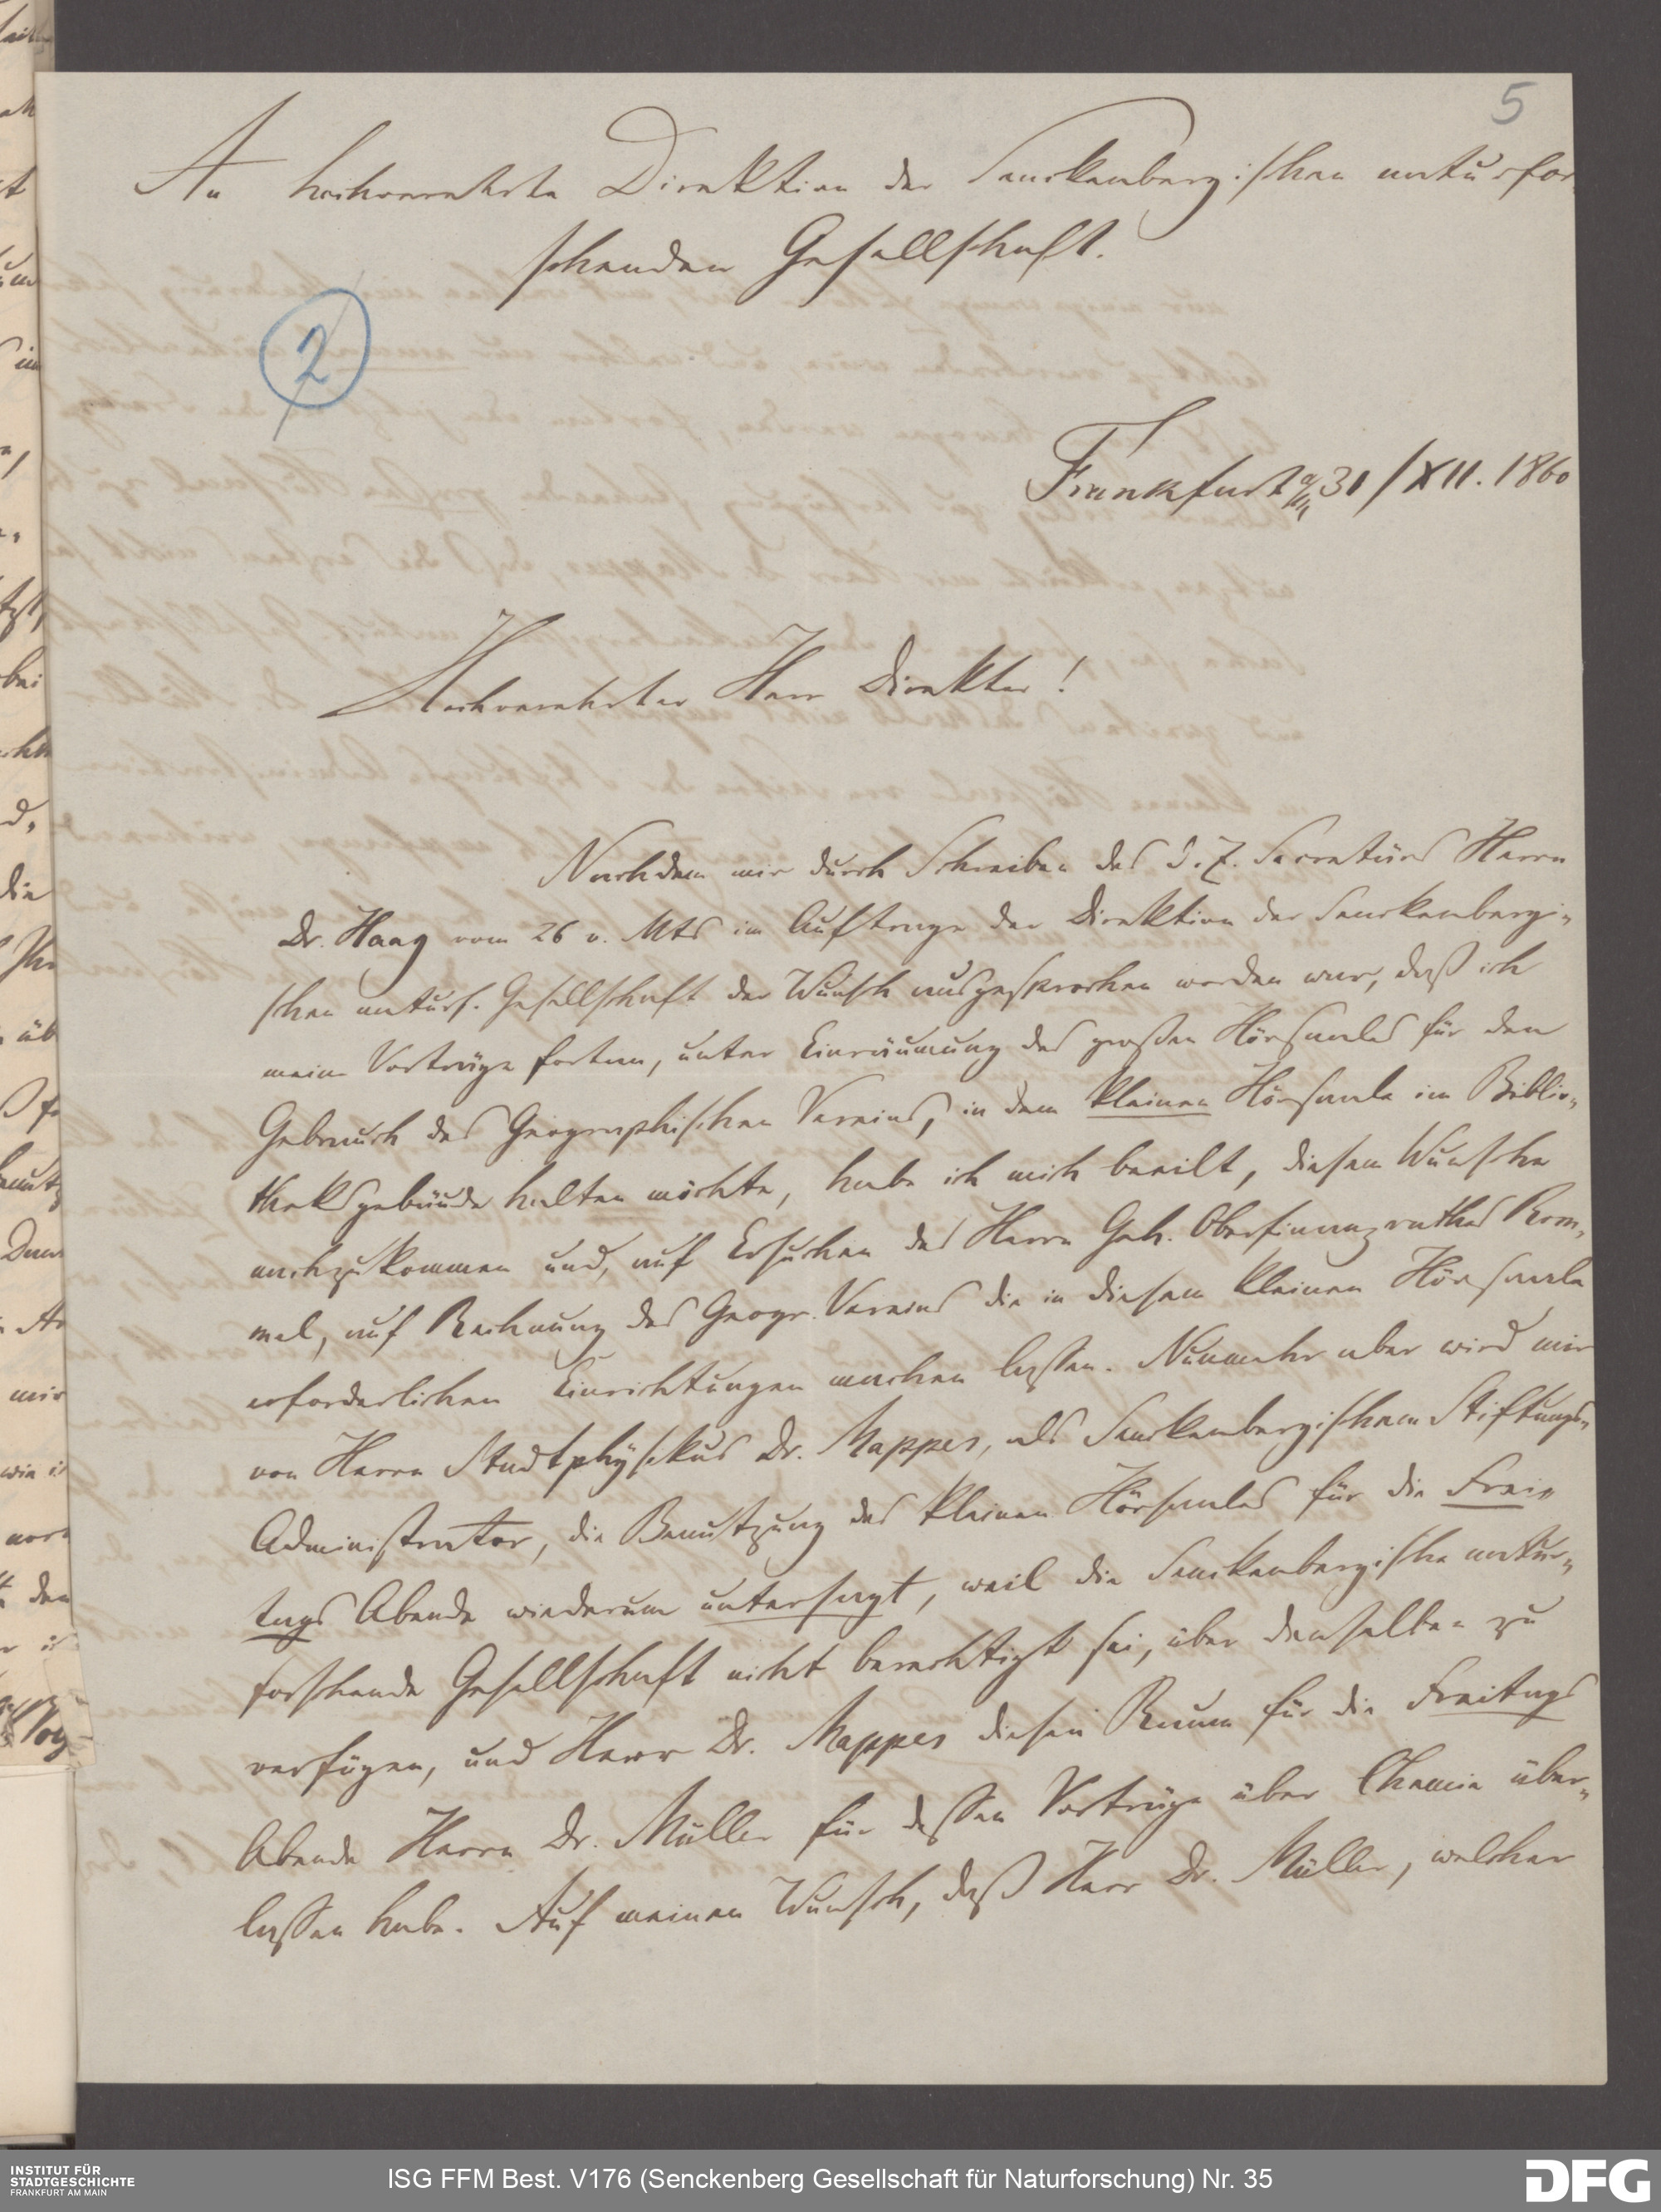 5
An hochverehrte Direktion der Senckenbergischen naturfor-
schenden Gesellschaft.
2
Frankfurt a/M 31/XII. 1860
Hochverehrter Herr Direktor!
Nachdem mir durch Schreiben des d. Z. Secretärs Herrn
Dr. Haag vom 26 v. Mts im Auftrage der Direktion der Senckenbergi-
schen naturf. Gesellschaft der Wunsch ausgesprochen worden war, daß ich
meine Vorträge fortan, unter Einräumung des großen Hörsaales für den
Gebrauch des Geographischen Vereins, in dem kleinen Hörsaale im Biblio-
theksgebäude halten möchte, habe ich mich beeilt, diesem Wunsche
nachzukommen und, auf Ersuchen des Herrn Geh. Oberfinanzrathes Rom-
mel, auf Rechnung des Geogr. Vereins die in diesem kleinen Hörsaale
erforderlichen Einrichtungen machen lassen. Nunmehr aber wird mir
von Herrn Stadtphysikus Dr. Mappes, als Senckenbergischem Stiftungs-
Administrator, die Benutzung des kleinen Hörsaales für die Frei-
tags Abende wiederum untersagt, weil die Senckenbergische natur-
forschende Gesellschaft nicht berechtigt sei, über denselben zu
verfügen, und Herr Dr. Mappes diesen Raum für die Freitags
Abende Herrn Dr. Müller für dessen Vorträge über Chemie über-
lassen habe. Auf meinen Wunsch, daß Herr Dr. Müller, welcher
INSTITUT FÜR
STADTGESCHICHTE
FRANKFURT AM MAIN
ISG FFM Best. V176 (Senckenberg Gesellschaft für Naturforschung) Nr. 35
DFG